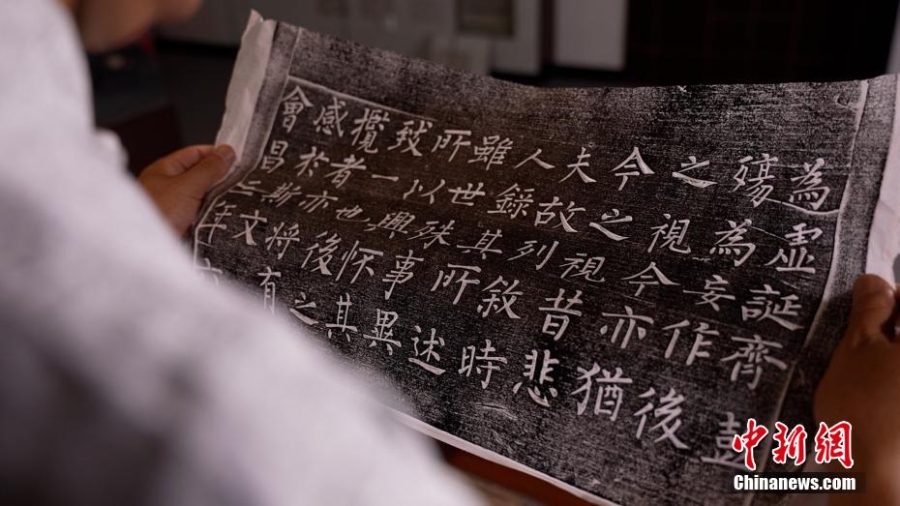 為虛誕齊彭
殤為妄作後
之視今亦猶
今之視昔悲
夫故列敘時
人錄其所述
雖世殊事異
所以興怀其
致一也後之
攬者亦將有
感於斯文
會昌二年
中新网
Chinanews.com